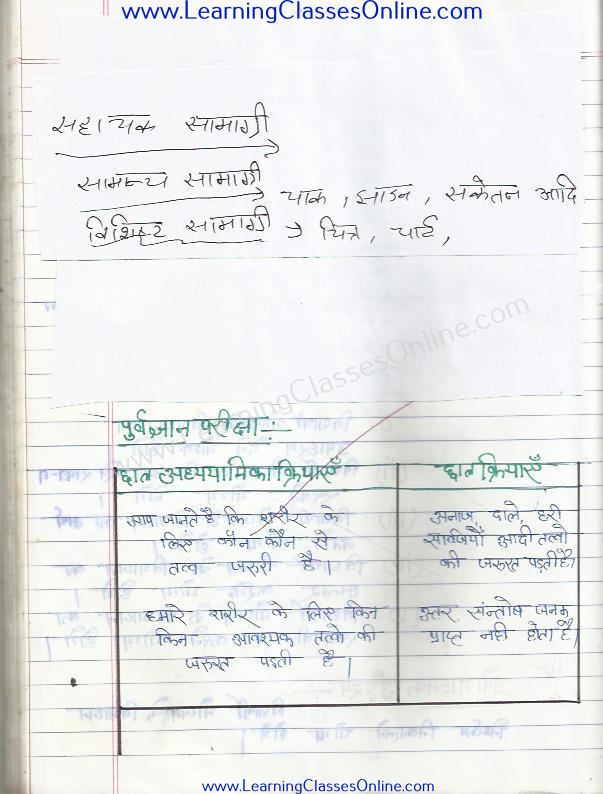 www.LearningClassesOnline.com
सहायक सामाग्री
सामान्य सामाग्री → चाक, झाडन, संकेतन आदि
विशिष्ट सामाग्री → चित्र, चार्ट,
www.LearningClassesOnline.com
पुर्वज्ञान परीक्षा :-
छात्र अध्ययापिका क्रियाएँ छात्र क्रियाएँ
आप जानते है कि शरीर के
लिए कौन कौन से
तत्व जरुरी है।
अनाज दाले, हरी
सब्जियाँ आदी तत्वो
की जरुरत पड़ती है।
हमारे शरीर के लिए किन
किन आवश्यक तत्वो की
जरुरत पडती है।
उत्तर संन्तोष जनक
प्राप्त नही होता है।
www.LearningClassesOnline.com